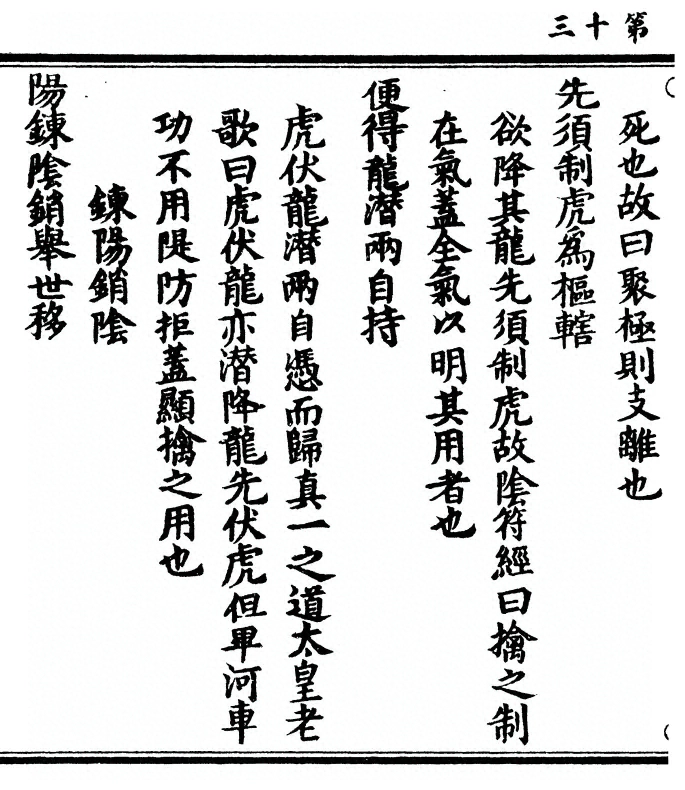 第十三
死也故曰聚極則支離也
先須制虎為樞轄
欲降其龍先須制虎故陰符經曰擒之制
在氣蓋全氣以明其用者也
便得龍潛兩自持
虎伏龍潛兩自憑而歸真一之道太皇老
歌曰虎伏龍亦潛降龍先伏虎但畢河車
功不用隄防拒蓋顯擒之用也
鍊陽銷陰
陽鍊陰銷舉世移